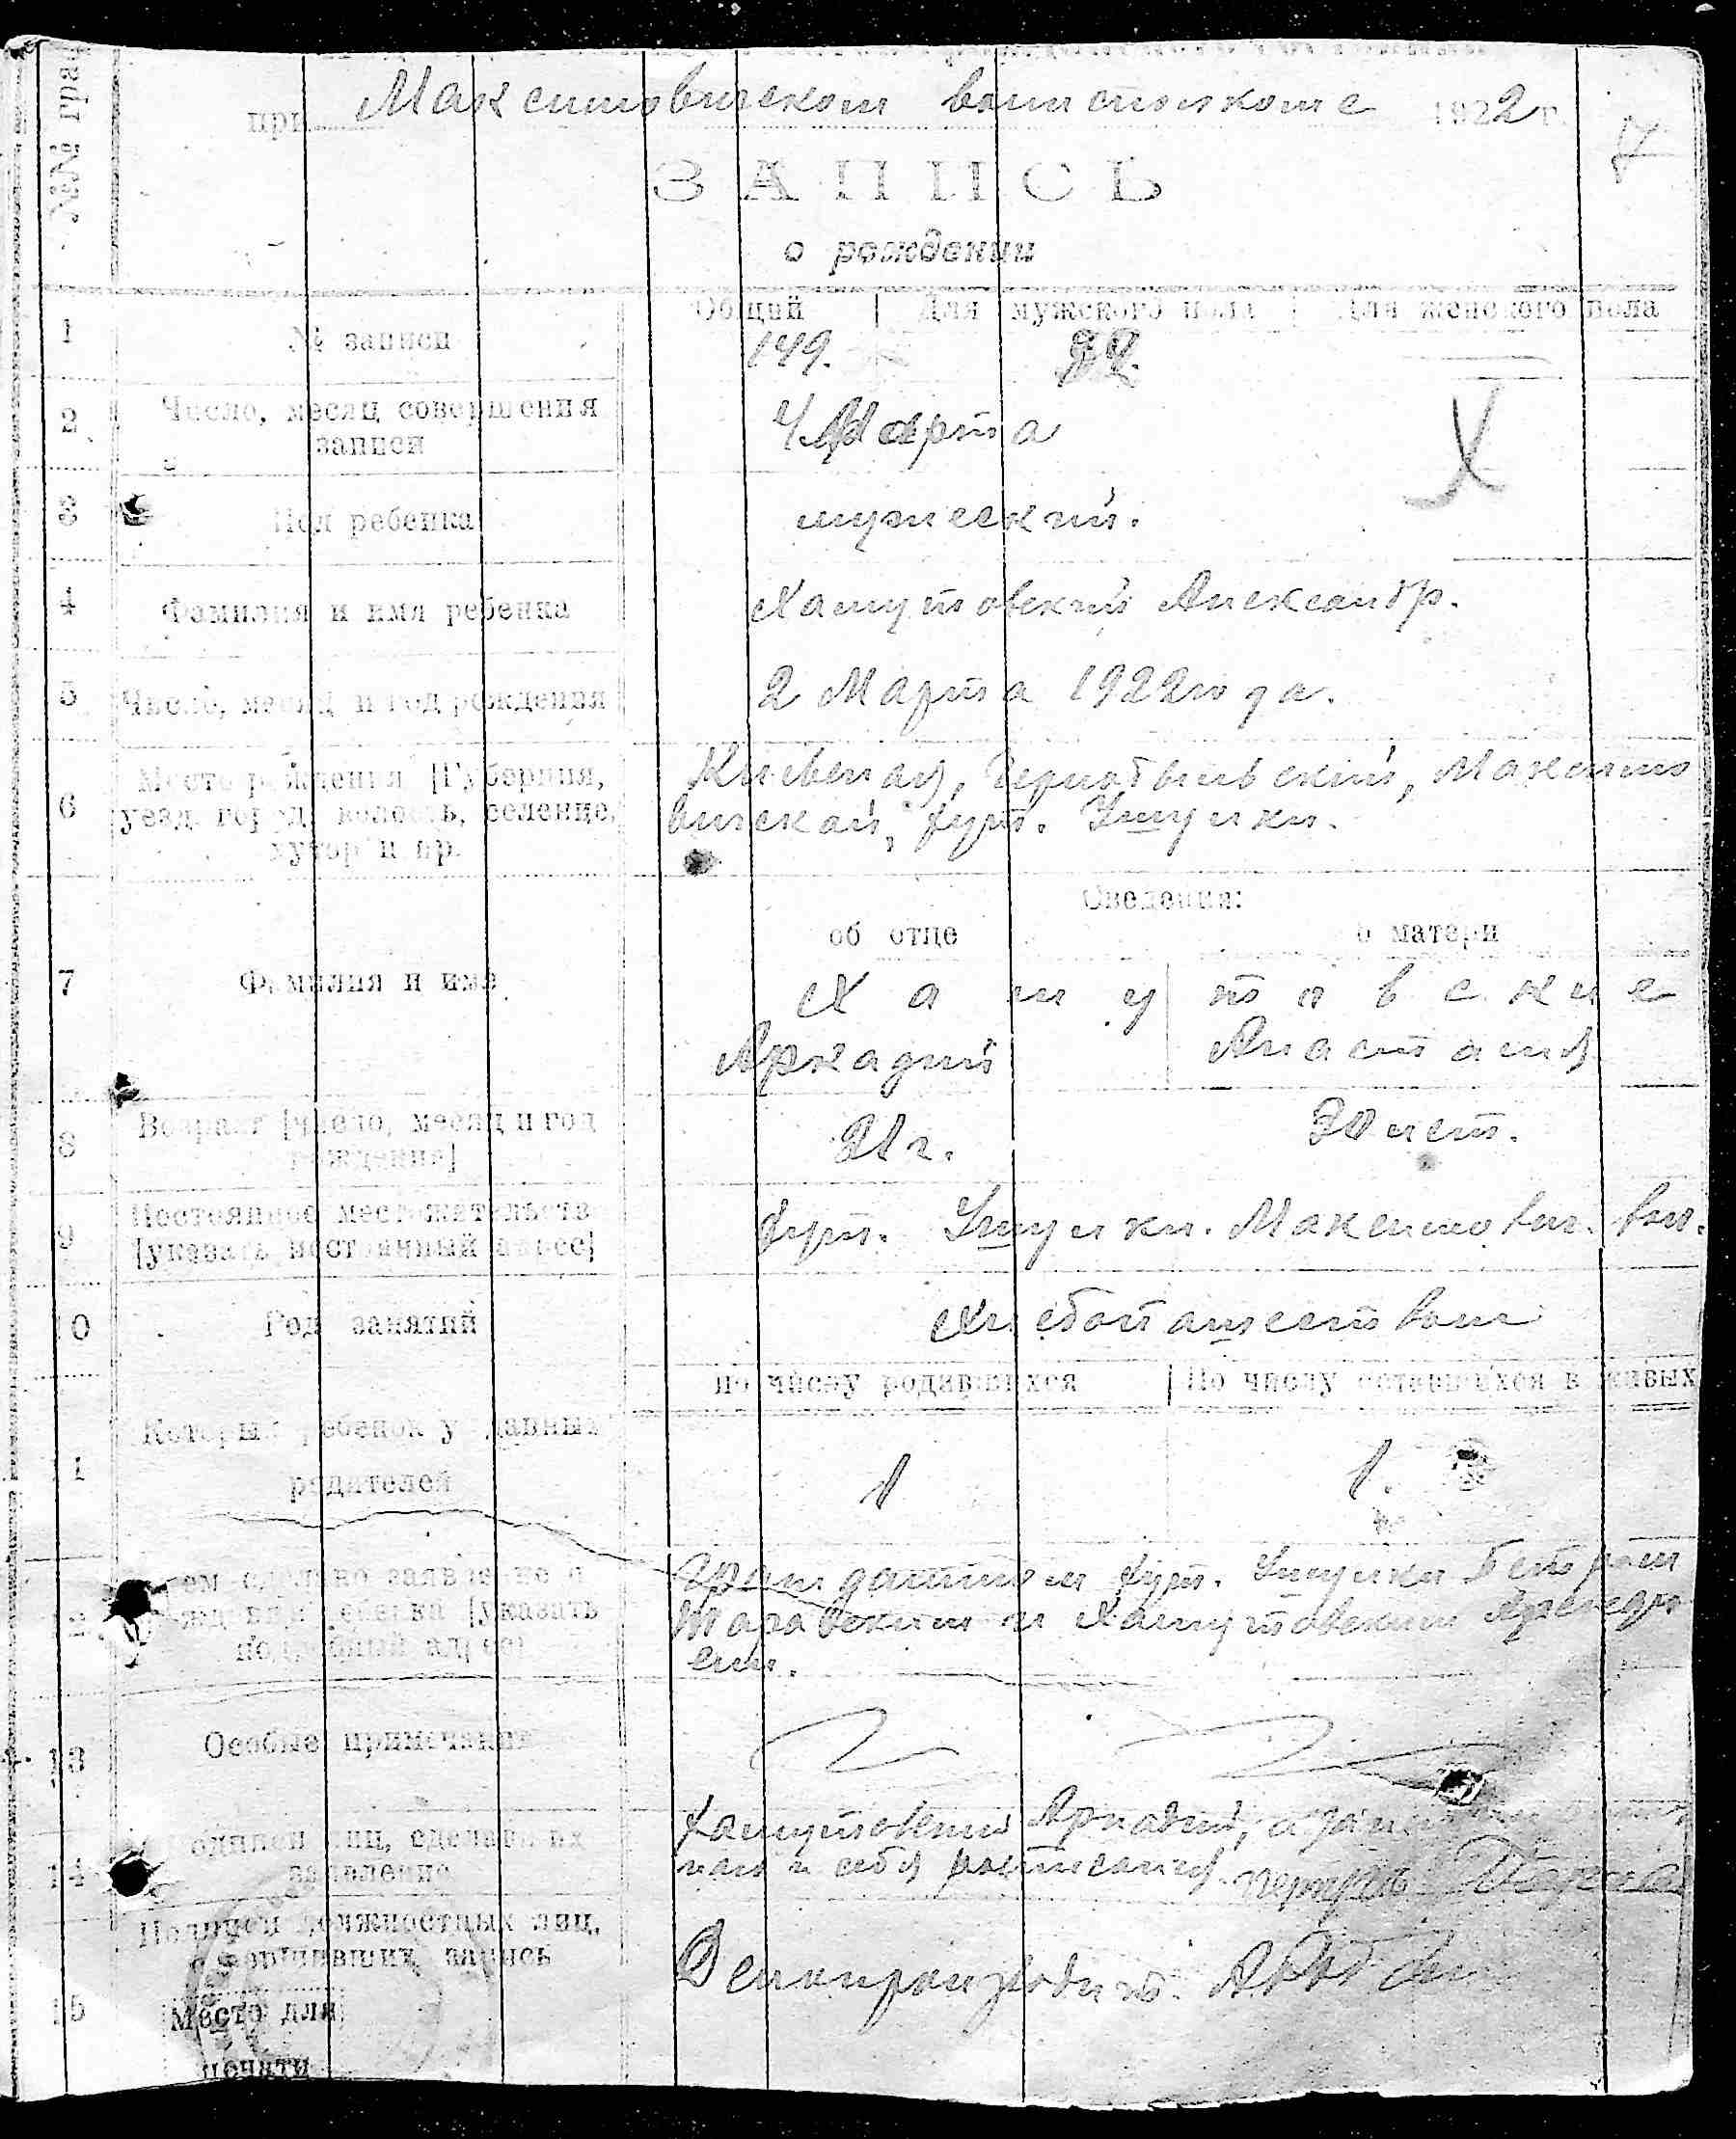 №№ гра
при Максимовическом волисполкоме 1922 г.
7
ЗАПИСЬ
о рождении
Общий | Для мужского пола | Для женского пола
1 № записи 149.
2 Число, месяц совершения записи 4 Марта
3 Пол ребенка мужеский.
4 Фамилия и имя ребенка Хамутовский Александр.
5 Число, месяц и год рождения 2 Марта 1922 года.
6 Место рождения [Губерния, Киевская, Чернобыльский, Максимо
уезд, город, волость, селение, вической, хут.
хутор и пр.
Сведения:
об отце о матери
7 Фамилия и имя Хамутовские
Аркадий Анастасия
8 Возраст [число, месяц и год 21 г. 20 лет.
рождения]
9 Постоянное местожительство хут. Максимович. вол.
[указать постоянный адрес]
10 Род занятий Хлебопашеством
по числу родившихся | По числу оставшихся в живых
11 Который ребенок у данных
родителей 1 1.
12 Кем сделано заявление о Гражданином хут. Петром
рождении ребенка [указать и Хамутовским
подробный адрес]
13 Особые примечания
14 Подписи лиц, сделавших Хамутовский Аркадий, а за
заявление и себя расписался
Подписи должностных лиц,
совершивших запись Делопроизводит.
15 Место для
печати